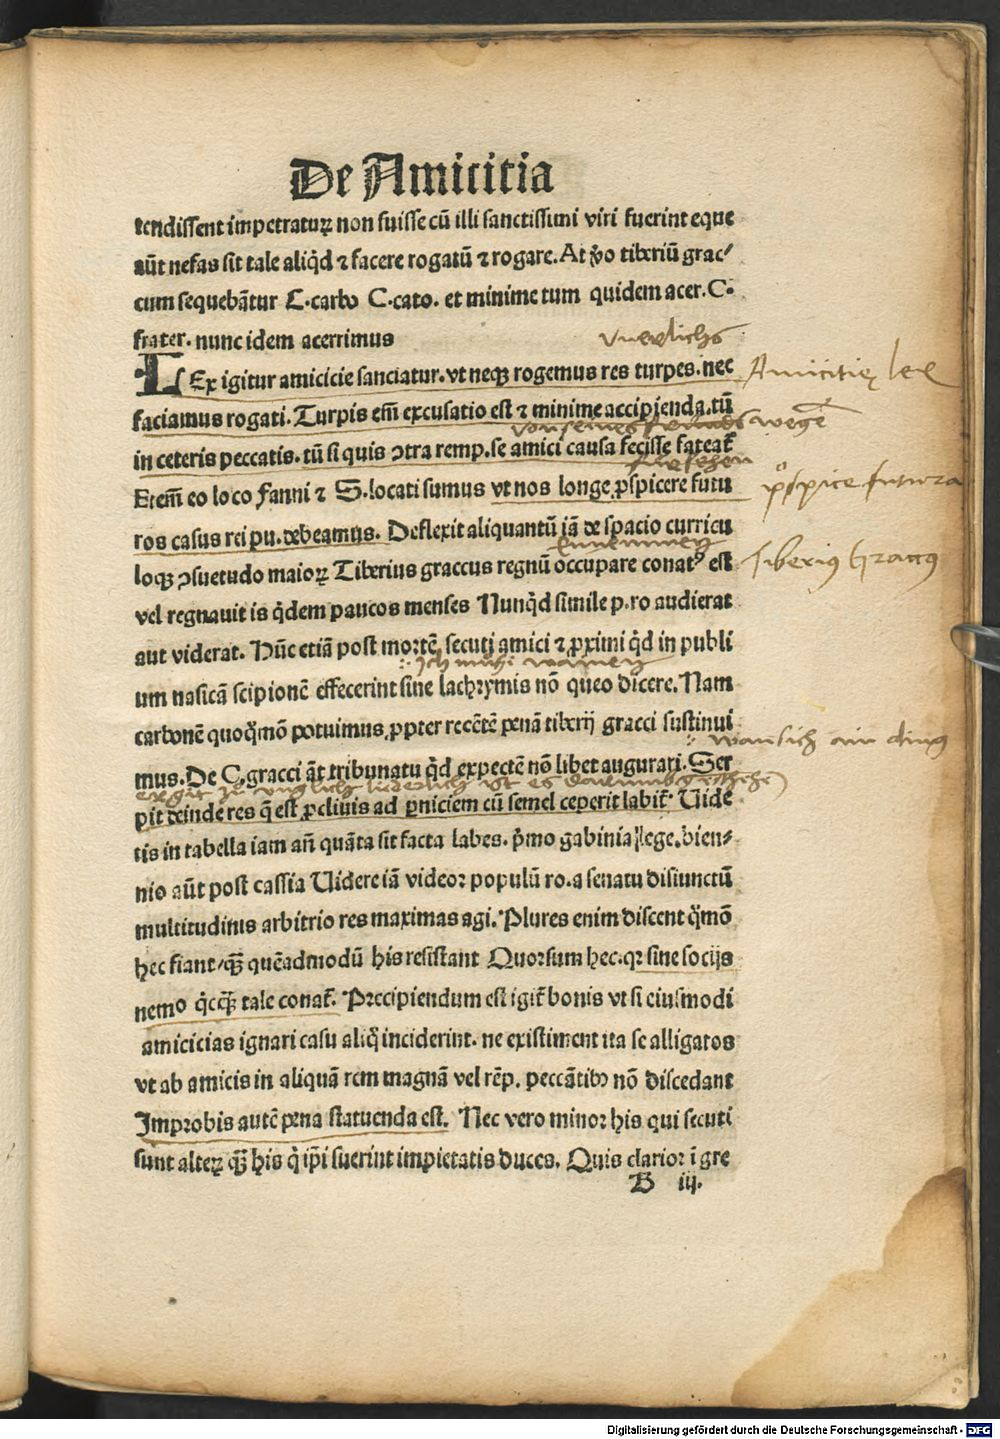 De Amicitia
tendissent impetraturꝝ non fuisse cū illi sanctissimi viri fuerint eque
aūt nefas sit tale aliq̄d ⁊ facere rogatū ⁊ rogare. At v̄o tiberiū grac⸗
cum sequebātur C. carbo C. cato. et minime tum quidem acer. C.
frater. nunc idem acerrimus
LEx igitur amicicie sanciatur. vt neqꝫ rogemus res turpes. nec
Amicitię lex
faciamus rogati. Turpis em̄ excusatio est ⁊ minime accipienda. tū
von seines wegē
in ceteris peccatis. tū si quis ↄtra remp. se amici causa fecisse fateat̄
Etem̄ eo loco Fanni ⁊ S. locati sumus vt nos longe ꝓspicere futu
ꝓspice futura
ros casus rei pu. debeamus. Deflexit aliquantū iā de spacio curricu
loqꝫ ↄsuetudo maioꝝ Tiberius graccus regnū occupare conatꝰ est
Tiberius Graccus
vel regnauit is q̄dem paucos menses Nunq̄d simile p. ro audierat
aut viderat. Hūc etiā post mortē secuti amici ⁊ ꝓximi q̄d in publi
um nasicā scipionē effecerint sine lachrymis nō queo dicere. Nam
carbonē quoq̄mō potuimus ꝓpter recētē penā tiberij gracci sustinui
wan sich ain ding
mus. De C. gracci āt tribunatu q̄d expectē nō libet augurari. Ser
pit deinde res q̄ est ꝓcliuis ad ꝑniciem cū semel ceperit labit̄. Uide
tis in tabella iam añ quāta sit facta labes. p̄mo gabinia lege. bien⸗
nio aūt post cassia Uidere iā videor populū ro. a senatu disiunctū
multitudinis arbitrio res maximas agi. Plures enim discent q̄mō
hec fiant/ qꝫ̄ quēadmodū his resistant Quorsum hec. qꝛ sine socijs
nemo q̄cqꝫ̄ tale conat̄. Precipiendum est igit̄ bonis vt si eiusmodi
amicicias ignari casu aliq̄ inciderint. ne existiment ita se alligatos
vt ab amicis in aliquā rem magnā vel rēp. peccātibꝰ nō discedant
Improbis autē pena statuenda est. Nec vero minor his qui secuti
sunt alteꝝ qꝫ̄ his q̄ ip̄i fuerint impietatis duces. Quis clarior ī gre
B iij.
Digitalisierung gefördert durch die Deutsche Forschungsgemeinschaft - DFG